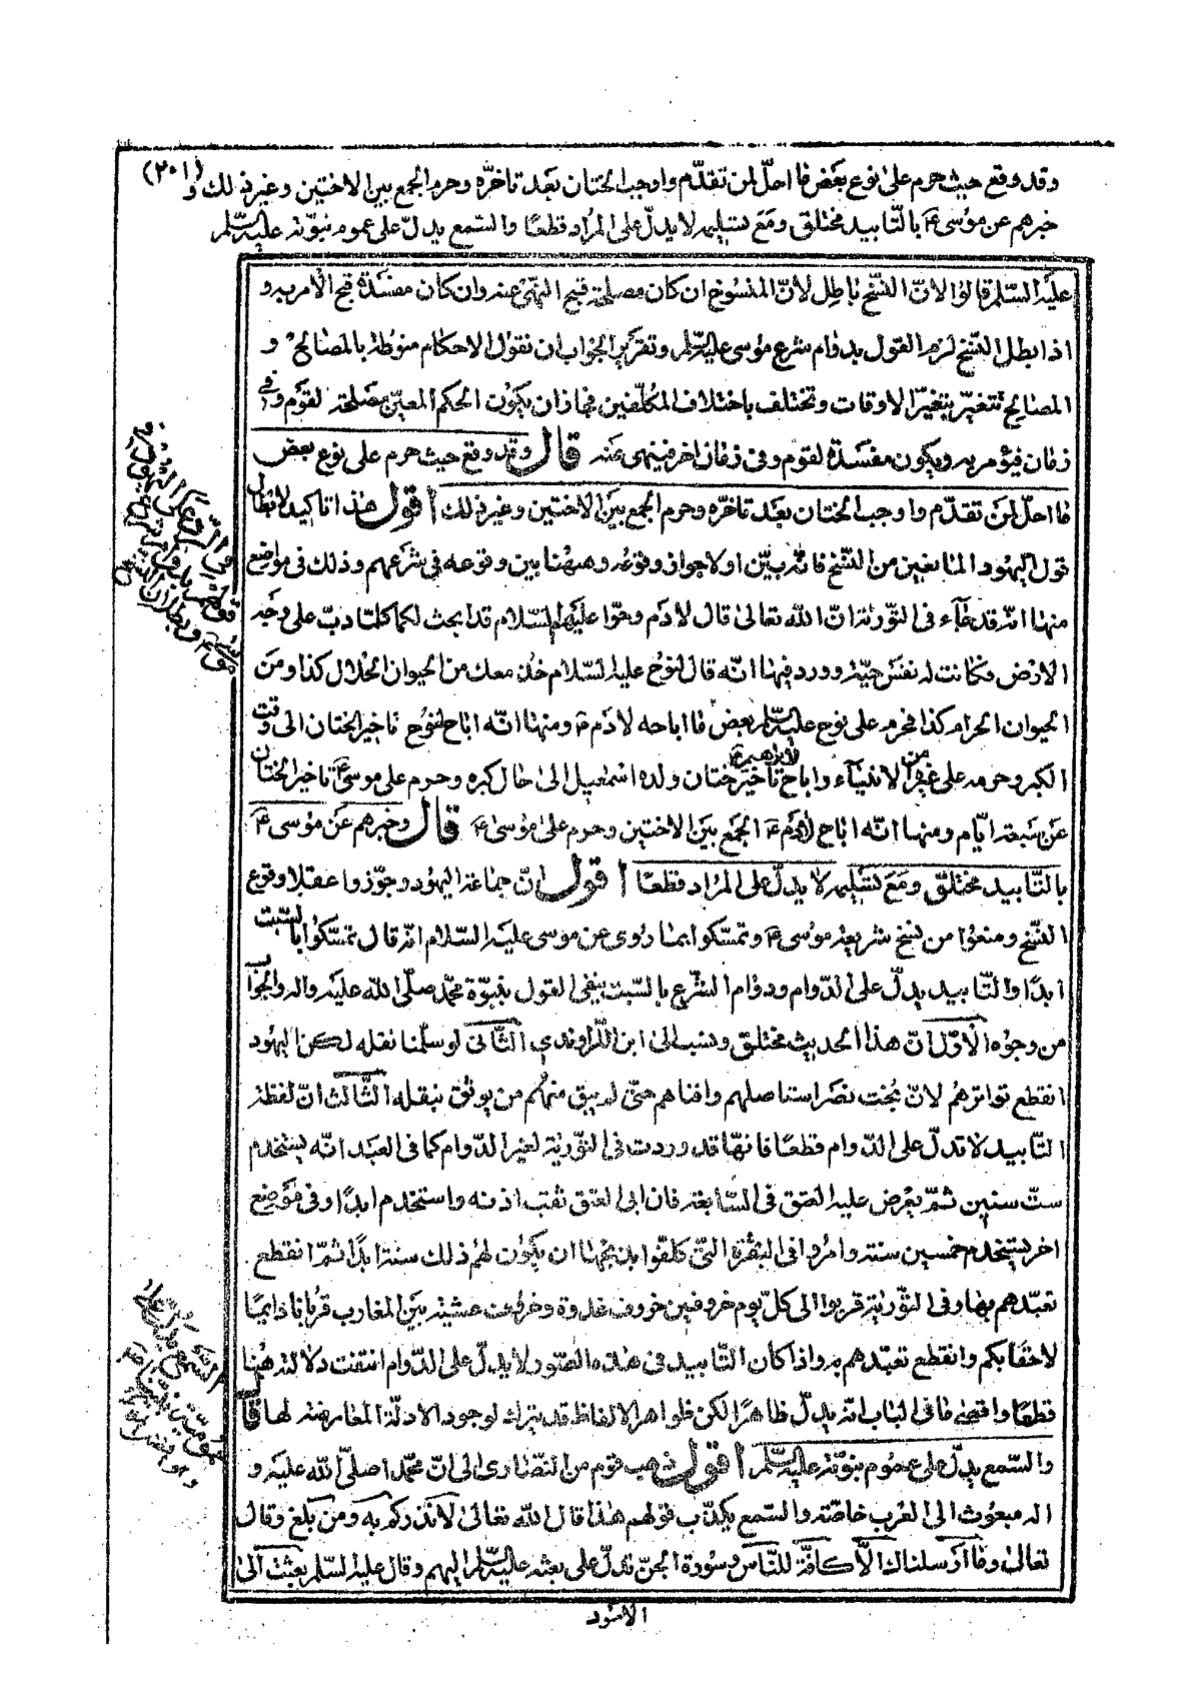 (٢٠١)
وقد وقع حيث حرم على نوع بعض ما احلّ لمن تقدّم واوجب الختان بعد تاخّره وحرم الجمع بين الاختين وغير ذلك و
خبرهم عن موسى ع بالتّابيد مختلق ومع تسليمه لا يدلّ على المراد قطعًا والسّمع يدلّ على عموم نبوّته عليه السّلم
عليه السّلم قالوا لانّ النّسخ باطل لانّ المنسوخ ان كان مصلحة قبح النّهى عنه وان كان مفسدة قبح الامر به و
اذا بطل النّسخ لزم القول بدوام شرع موسى عليه السّلم وتقرير الجواب ان نقول الاحكام منوطة بالمصالح و
المصالح تتغيّر بتغيّر الاوقات وتختلف باختلاف المكلّفين فجاز ان يكون الحكم المعيّن مصلحة لقوم وفى
زمان فيؤمر به ويكون مفسدة لقوم وفى زمان اخر فينهى عنه قال وقد وقع حيث حرم على نوع بعض
ما احلّ لمن تقدّم واوجب الختان بعد تاخّره وحرم الجمع بين الاختين وغير ذلك اقول هذا تاكيد لابطال
قول اليهود المانعين من النّسخ فانّه بيّن اولا جواز وقوعه وهيهنا بين وقوعه فى شرعهم وذلك فى مواضع
منها انّه قد جاء فى التّورية انّ الله تعالى قال لادم وحوّا عليهما السّلام قد ابحت لكما كلّما دبّ على وجه
الارض وكانت له نفس حيّة وورد فيها انّه قال لنوح عليه السّلام خذ معك من الحيوان الحلال كذا ومن
الحيوان الحرام كذا فحرم على نوح عليه السّلم بعض ما اباحه لادم ع ومنها انّه اباح لنوح تاخير الختان الى وقت
الكبر وحرمه على غيره من الانبياء واباح لابراهيم ع تاخير ختان ولده اسمعيل الى حال كبره وحرم على موسى ع تاخير الختان
عن سبعة ايّام ومنها انّه اباح لادم ع الجمع بين الاختين وحرم على موسى ع قال وخبرهم عن موسى ع
بالتّابيد مختلق ومع تسليمه لا يدلّ على المراد قطعًا اقول انّ جماعة اليهود جوّزوا عقلا وقوع
النّسخ ومنعوا من نسخ شريعة موسى ع وتمسّكوا بما روى عن موسى عليه السّلام انّه قال تمسّكوا بالسّبت
ابدًا والتّابيد يدلّ على الدّوام ودوام الشّرع بالسّبت ينفى القول بنبوّة محمّد صلّى الله عليه واله والجواب
من وجوه الاوّل انّ هذا الحديث مختلق ونسب الى ابن الرّاوندى الثّانى لو سلّمنا نقله لكن اليهود
انقطع تواترهم لانّ بخت نصر استاصلهم وافناهم حتّى لم يبق منهم من يوثق بنقله الثّالث انّ لفظة
التّابيد لا تدلّ على الدّوام قطعًا فانّها قد وردت فى التّورية لغير الدّوام كما فى العبد انّه يستخدم
ستّ سنين ثمّ يعرض عليه العتق فى السّابعة فان ابى العتق ثقب اذنه واستخدم ابدًا وفى موضع
اخر يستخدم خمسين سنة وامروا فى البقرة الّتى كلّفوا بذبحها ان يكون لهم ذلك سنة ابدًا ثمّ انقطع
تعبّدهم بها وفى التّورية قربوا الى كلّ يوم خروفين خروف غدوة وخروف عشيّة بين المغارب قربانا دايمًا
لاحقابكم وانقطع تعبّدهم به واذا كان التّابيد فى هذه الصّور لا يدلّ على الدّوام انتفت دلالته هنا
قطعا واقصى ما فى الباب انّه يدلّ ظاهرًا لكن ظواهر الالفاظ قد تترك لوجود الادلّة المعارضة لها قال
والسّمع يدلّ على عموم نبوّته عليه السّلم اقول ذهب قوم من النّصارى الى انّ محمّدا صلّى الله عليه و
اله مبعوث الى العرب خاصّة والسّمع يكذّب قولهم هذا قال الله تعالى لانذركم به ومن بلغ وقال
تعالى وما ارسلناك الّا كافّة للنّاس وسورة الجنّ تدلّ على بعثه عليه السّلم اليهم وقال عليه السّلم بعثت الى
الاسود